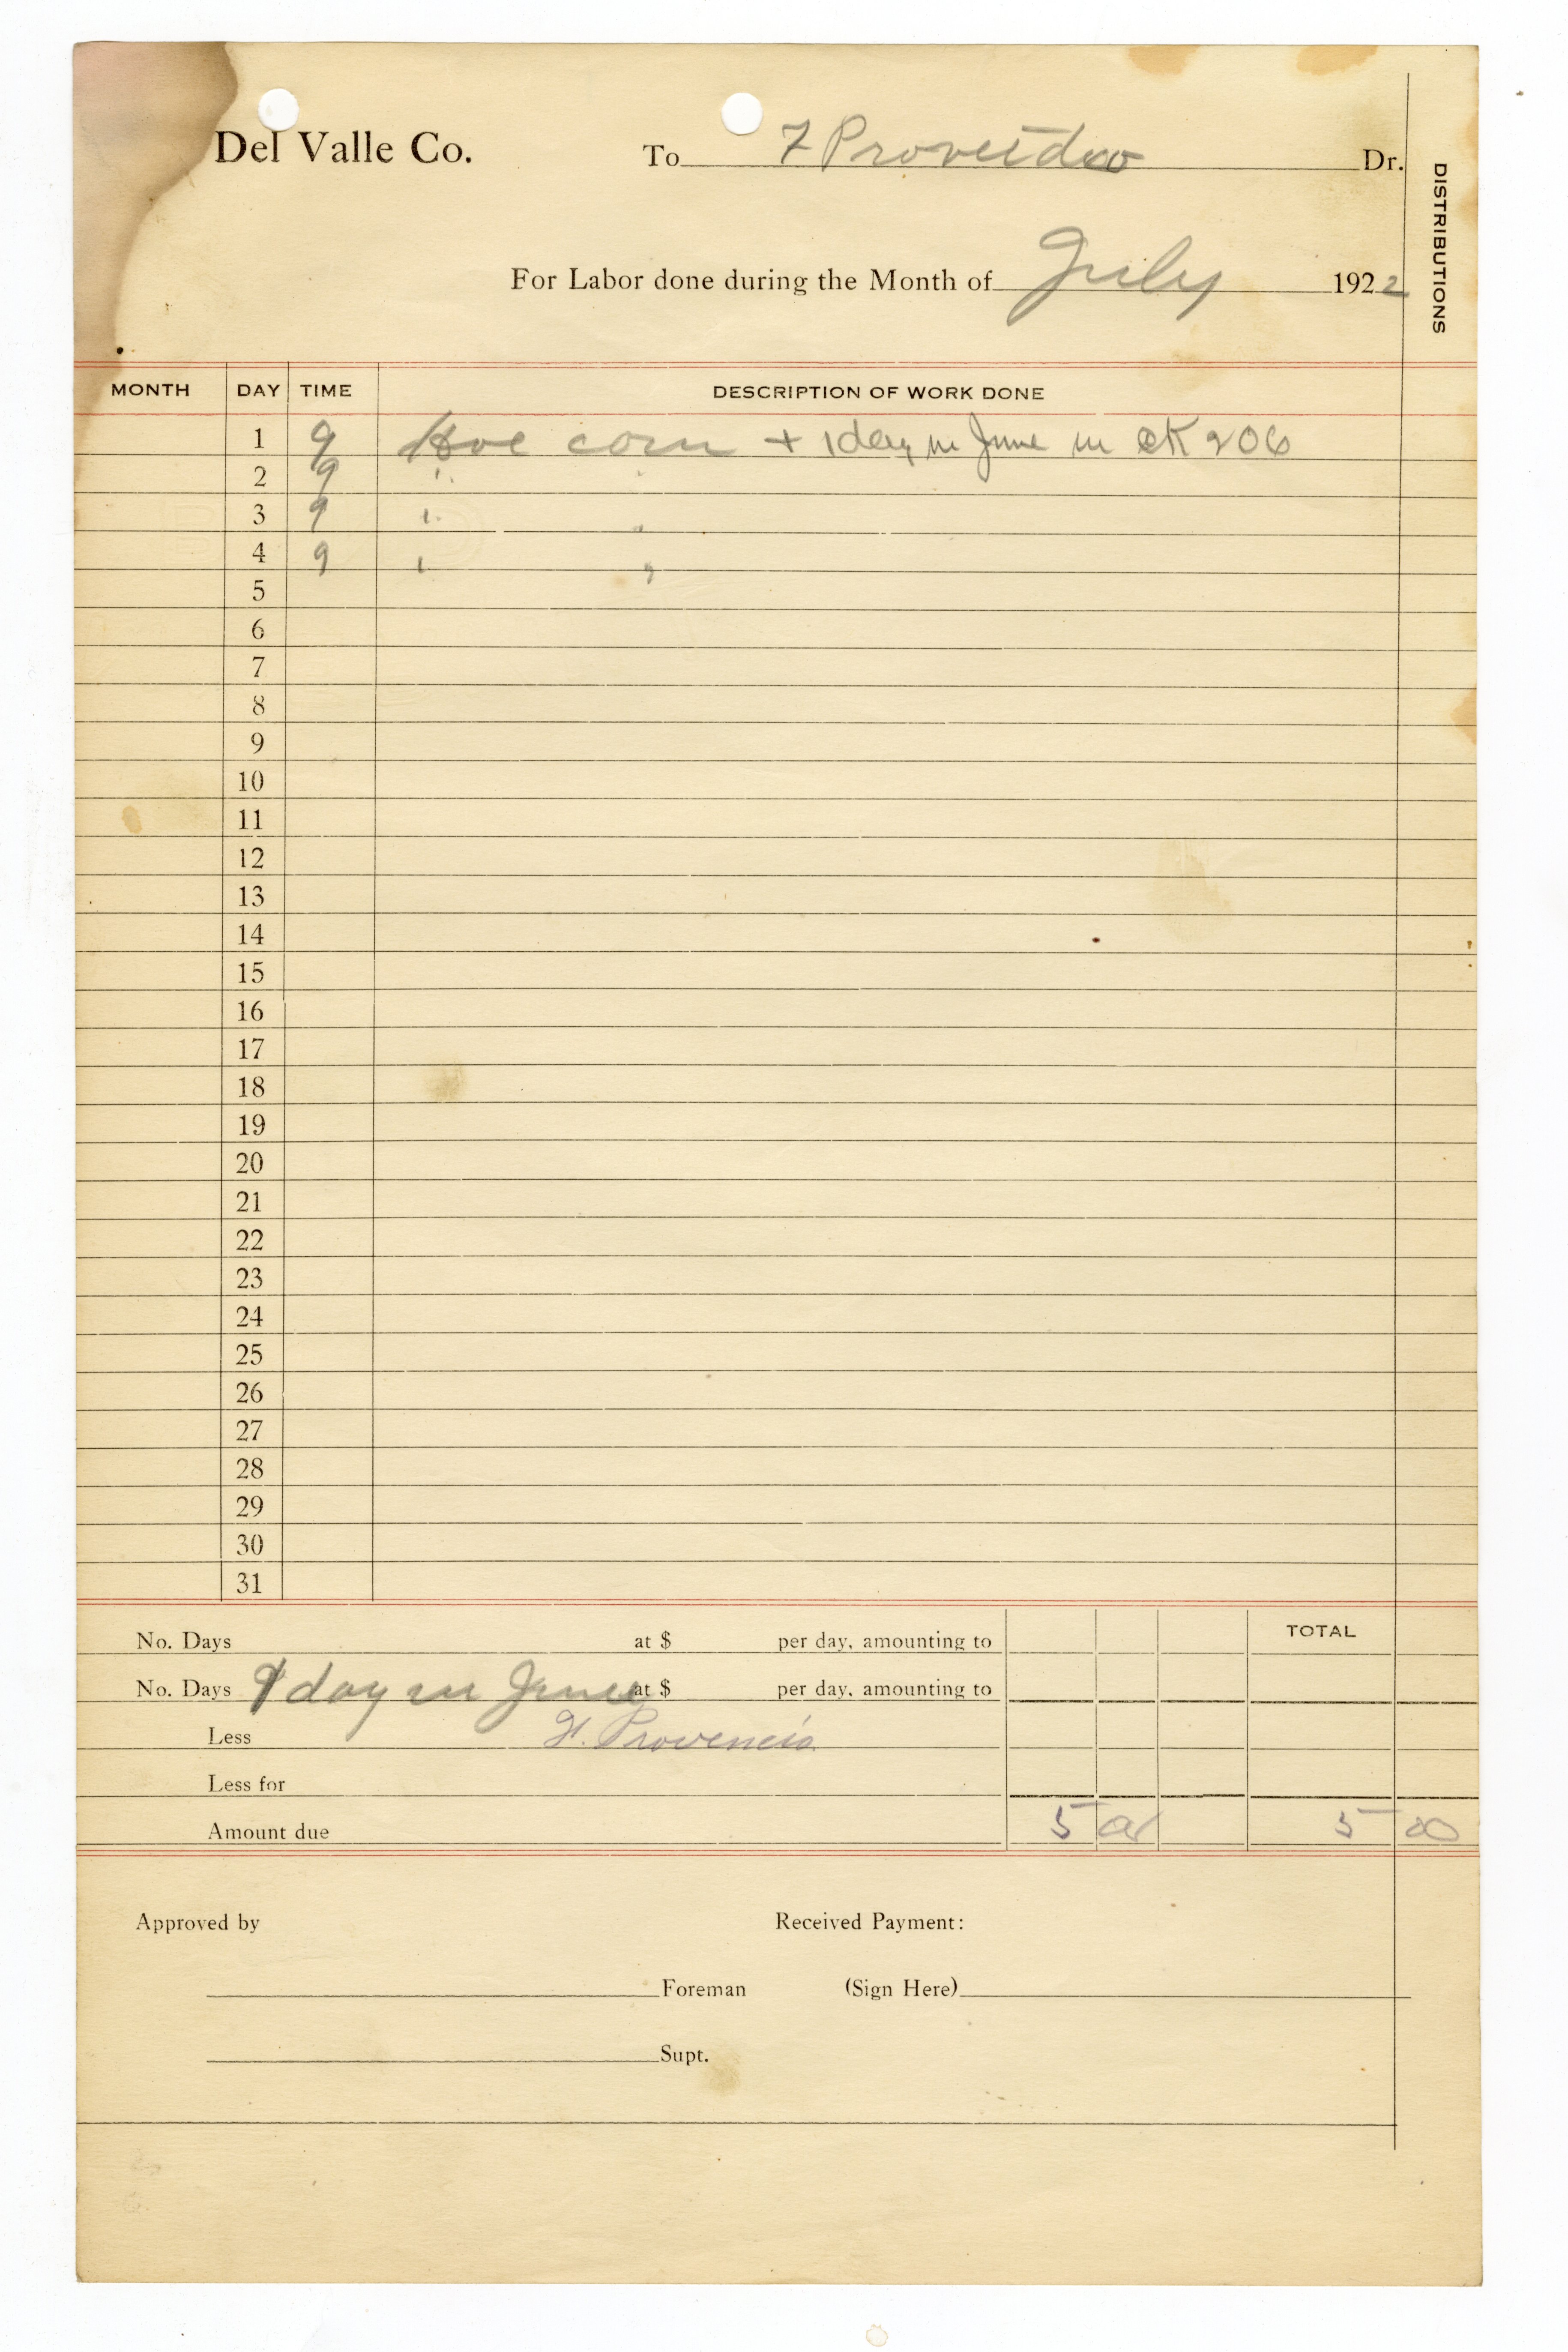 Del Valle Co. To 7 Proveideo Dr.
DISTRIBUTIONS
For Labor done during the Month of July 1922
MONTH DAY TIME DESCRIPTION OF WORK DONE
1 9 Hoe corn + 1 day in June in CK 206
2 9 " "
3 9 " "
4 9 " "
5
6
7
8
9
10
11
12
13
14
15
16
17
18
19
20
21
22
23
24
25
26
27
28
29
30
31
No. Days at $ per day, amounting to TOTAL
No. Days 1 day in June at $ per day, amounting to
Less F. Provencio
Less for
Amount due 5 00 5 00
Approved by Received Payment:
Foreman (Sign Here)
Supt.